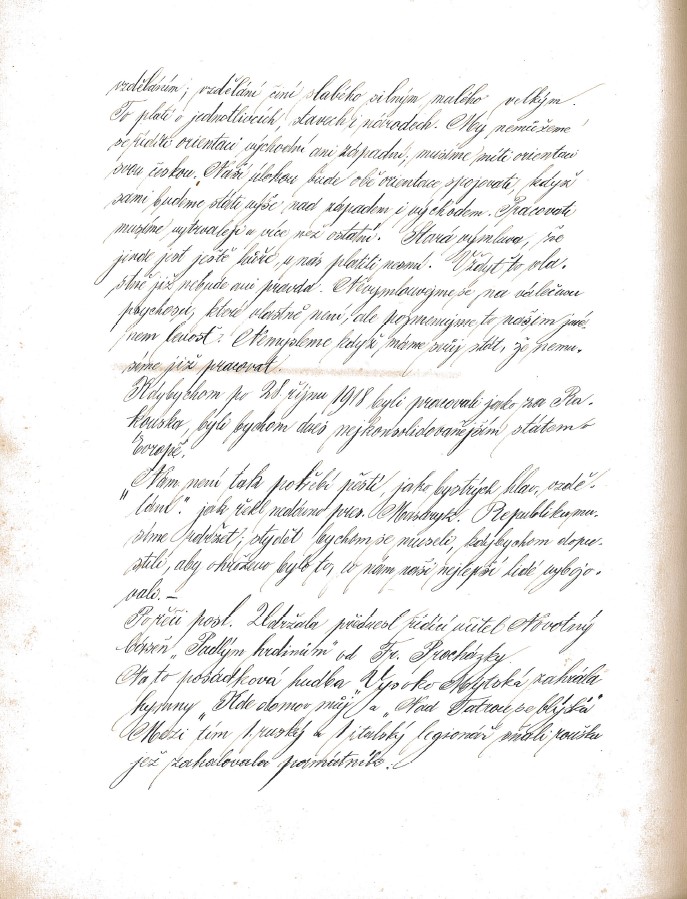 vzděláním; vzdělání činí slabého silným malého velkým.
To platí o jednotlivcích, stavech i národech. My nemůžeme
se říditi orientací východní ani západní, musíme míti orientaci
svou českou. Naší úlohou bude obě orientace spojovati, když
sami budeme státi výše nad západem i východem. Pracovati
musíme vytrvaleji a více než ostatní. Stará výmluva, že
jinde jest ještě hůře, u nás platiti nesmí. Vždyť to vla-
stně již nebude ani pravda. Nevymlouvejme se na válečnou
psychosu, které vlastně není, ale pojmenujme to naším jmé-
nem lenost. Nemysleme když máme svůj stát, že nemu-
síme již pracovat.
Kdybychom po 28. říjnu 1918 byli pracovali jako za Ra-
kouska, byli bychom dnes nejkonsolidovanějším státem v
Evropě.
„Nám není tak potřebí pěstí, jako bystrých hlav, vzdě-
lání“. jak řekl nedávno pres. Masaryk. Republiku mu-
síme udržet; stydět bychom se museli, kdybychom dopu-
stili, aby ohroženo bylo to, co nám naši nejlepší lidé vybojo-
vali. –
Po řeči posl. Udržala přednesl řídící učitel Novotný
báseň „Padlým hrdinům“ od Fr. Procházky.
Na to posádková hudba Vysoko Mýtská zahrála
hymny „Kde domov můj“ a „Nad Tatrou se blýská“
Mezi tím 1 ruský a 1 italský legionář sňali roušku
jež zahalovala pomátník.